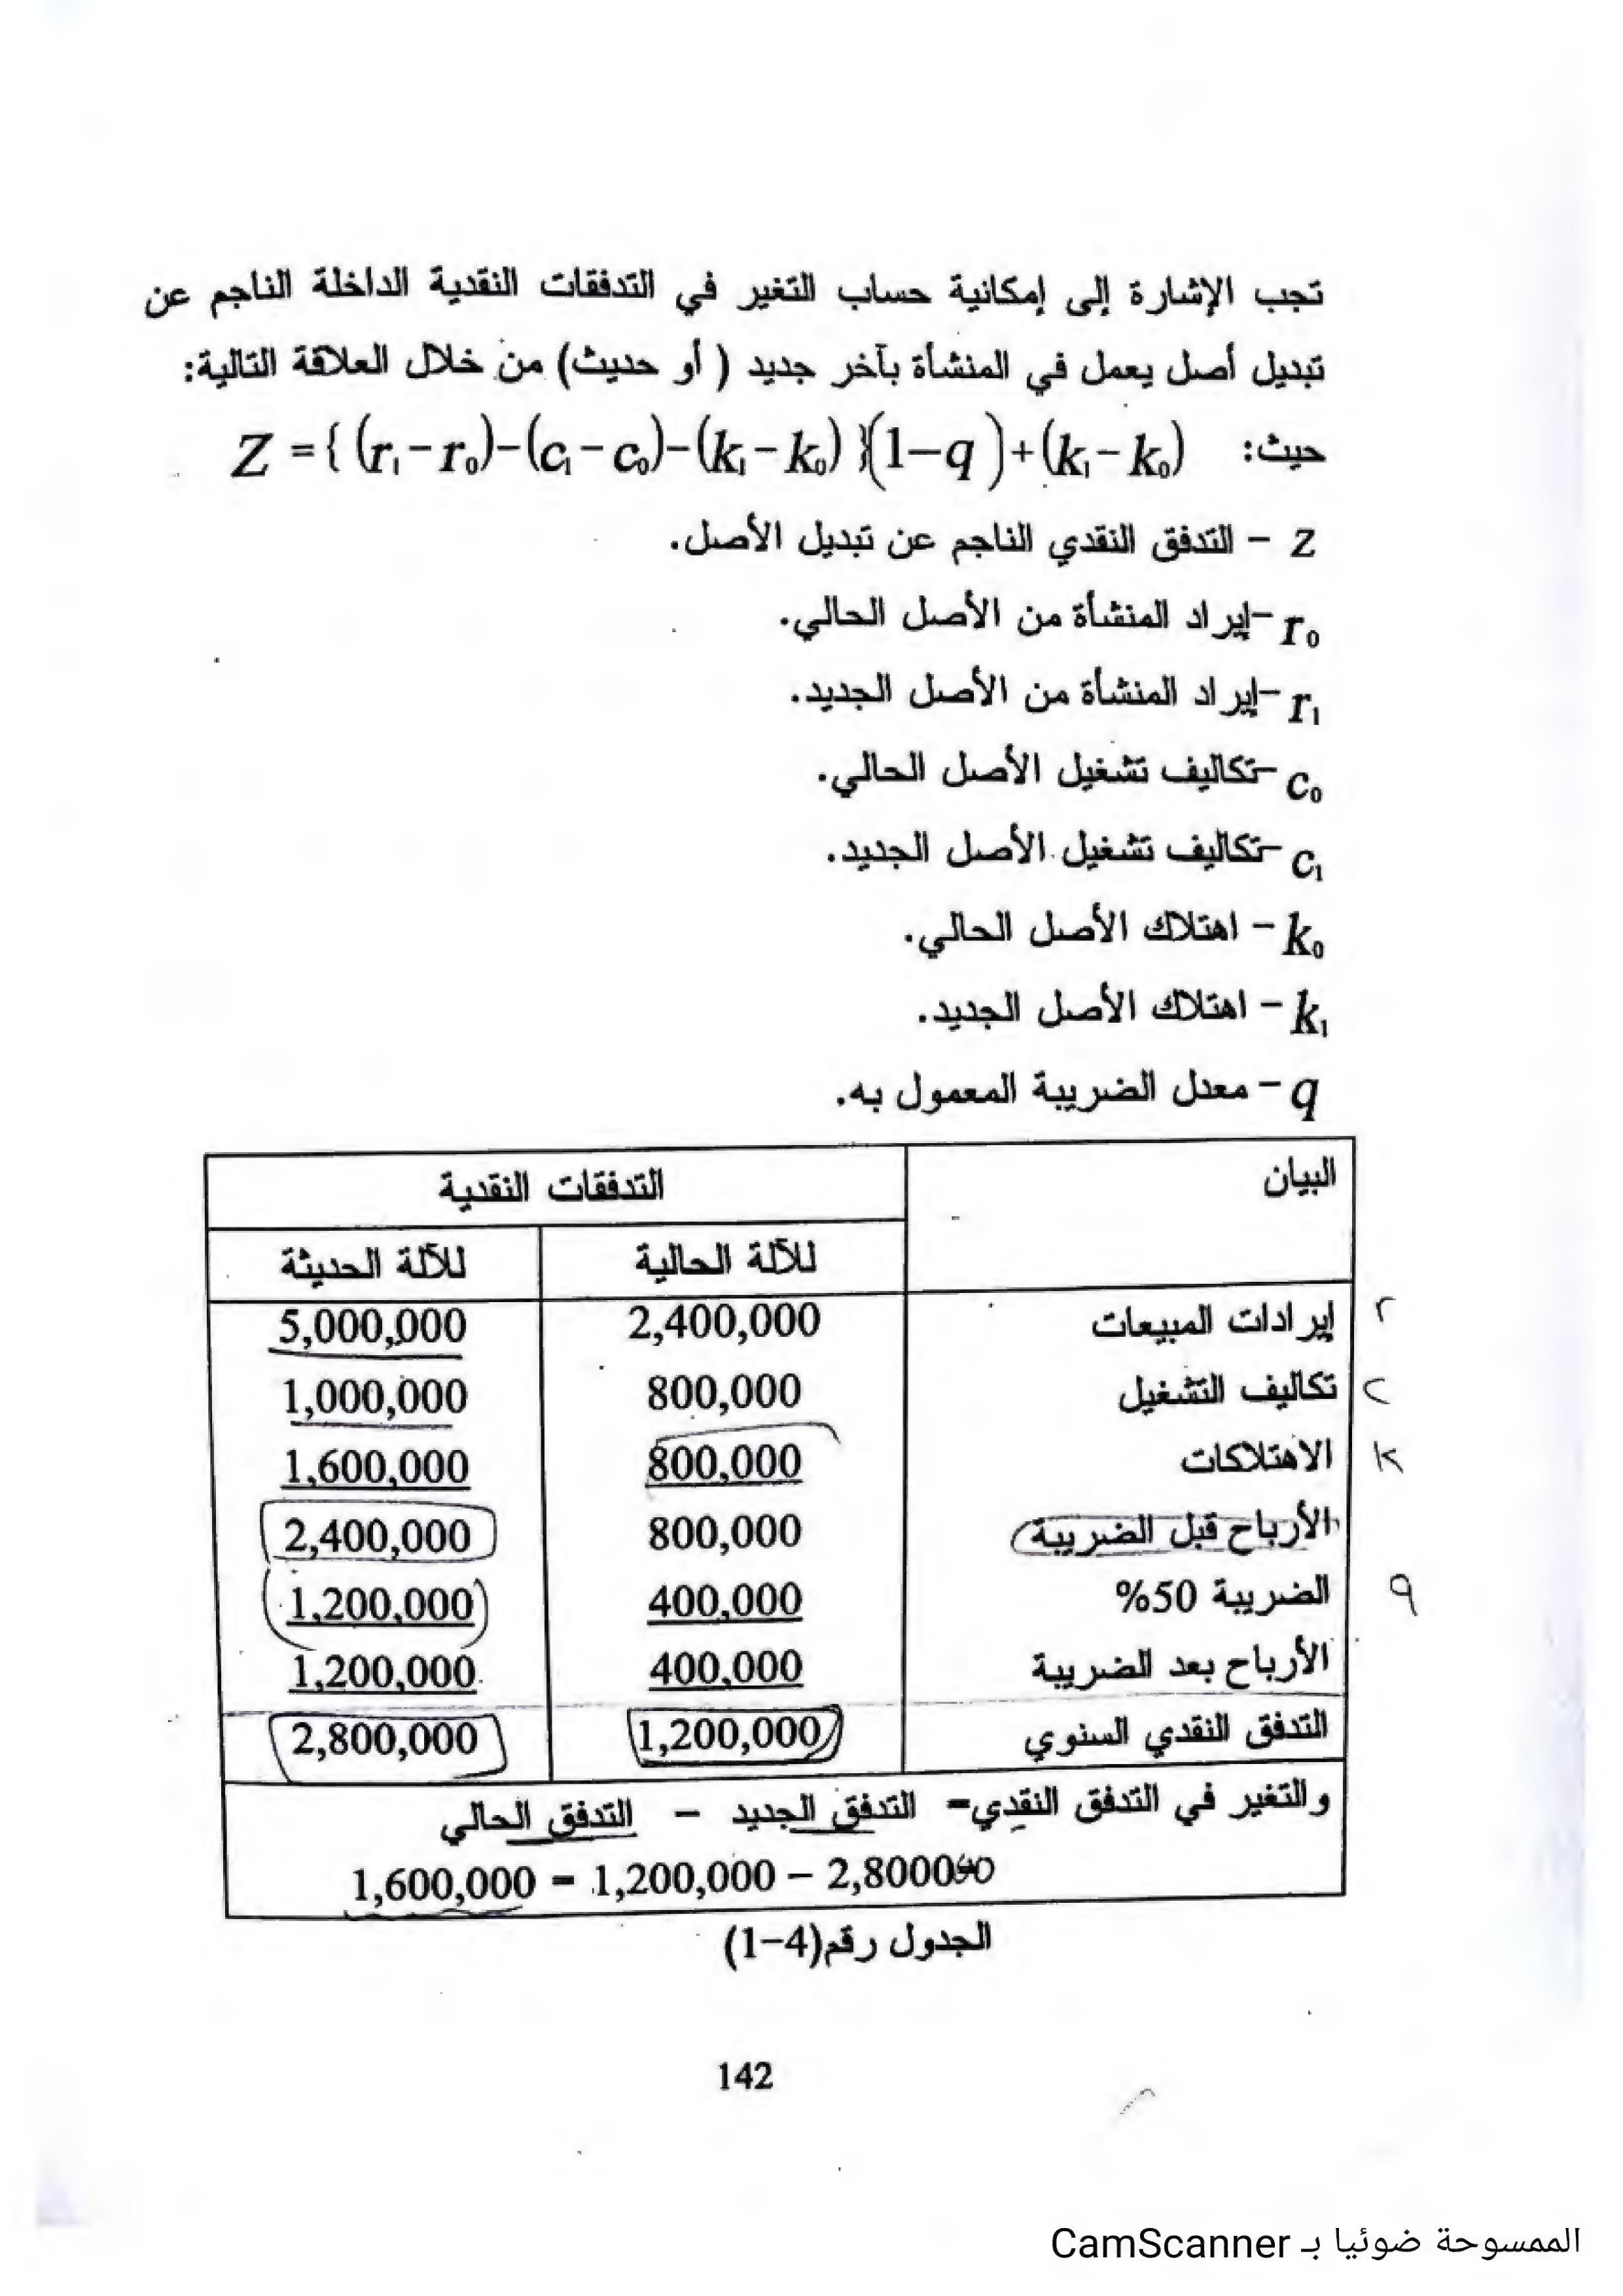 تجب الإشارة إلى إمكانية حساب التغير في التدفقات النقدية الداخلة الناجم عن
تبديل أصل يعمل في المنشأة بآخر جديد ( أو حديث) من خلال العلاقة التالية:
حيث: Z = { (r₁ – r₀) – (c₁ – c₀) – (k₁ – k₀) }(1 – q) + (k₁ – k₀)
Z – التدفق النقدي الناجم عن تبديل الأصل.
r₀ –إيراد المنشأة من الأصل الحالي.
r₁ –إيراد المنشأة من الأصل الجديد.
c₀ –تكاليف تشغيل الأصل الحالي.
c₁ –تكاليف تشغيل الأصل الجديد.
k₀ – اهتلاك الأصل الحالي.
k₁ – اهتلاك الأصل الجديد.
q – معدل الضريبة المعمول به.
البيان التدفقات النقدية
للآلة الحالية للآلة الحديثة
r إيرادات المبيعات 2,400,000 5,000,000
c تكاليف التشغيل 800,000 1,000,000
k الاهتلاكات 800,000 1,600,000
الأرباح قبل الضريبة 800,000 2,400,000
q الضريبة 50% 400,000 1,200,000
الأرباح بعد الضريبة 400,000 1,200,000
التدفق النقدي السنوي 1,200,000 2,800,000
والتغير في التدفق النقدي= التدفق الجديد – التدفق الحالي
1,600,000 = 1,200,000 – 2,800000
الجدول رقم(4-1)
142
الممسوحة ضوئيا بـ CamScanner